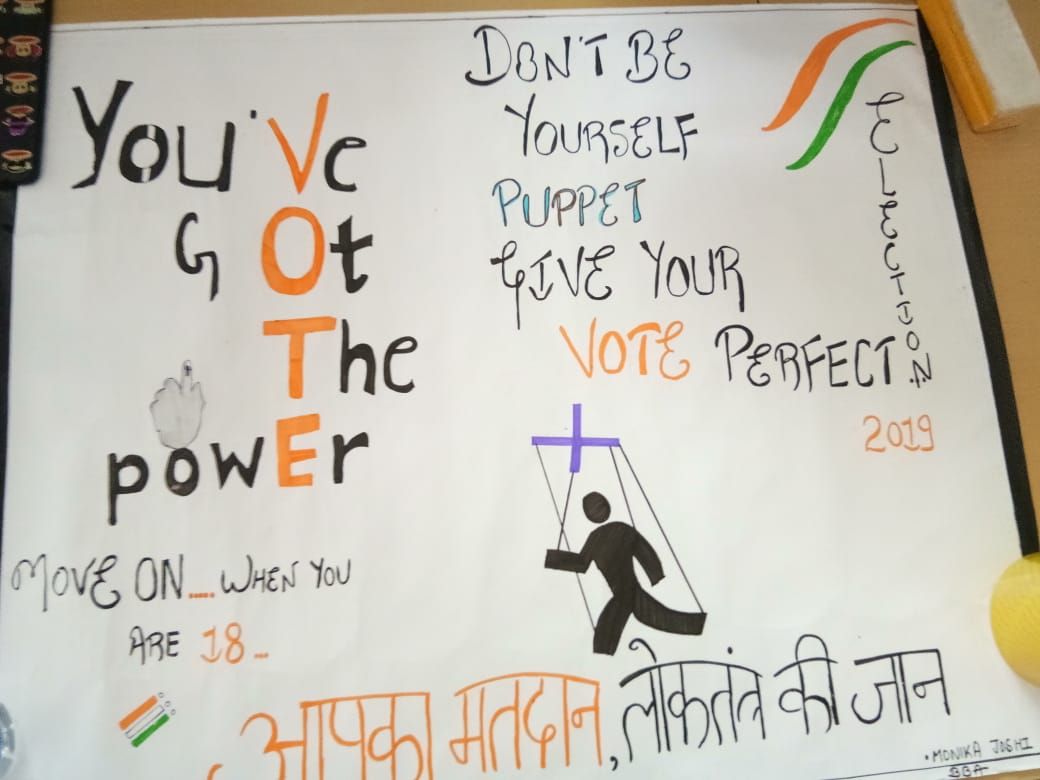 You've
GOt
The
powEr
MOVE ON.....WHEN YOU
ARE 18...
DON'T BE
YOURSELF
PUPPET
GIVE YOUR
VOTE PERFECT
ELECTION
2019
आपका मतदान, लोकतंत्र की जान
• MONIKA JOSHI
BBA